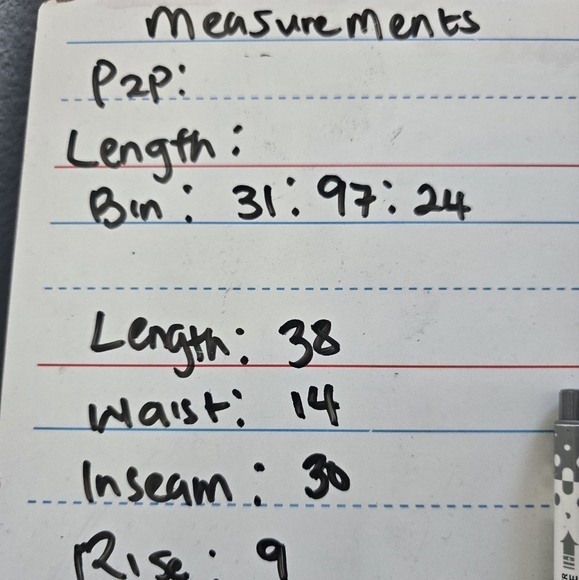 Measurements
P2P:
Length:
Bin: 31:97:24
Length: 38
Waist: 14
Inseam: 30
Rise: 9